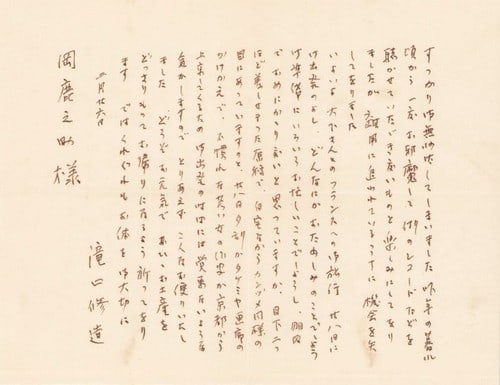 すっかり御無沙汰してしまいました 昨年の暮れ
頃から一度お邪魔して 御レコードなどを
聴かせていただき度いものと楽しみにしてをり
ましたが 雑用に追われているうちに 機会を失
してをりました
いよいよ フランスへの御旅行 廿八日に
御出発のよし、どんなにかおたのしみのことでしょう
御準備にいろいろお忙しいことでしょうし、明日
でもおめにかかり度いと思っていますが、目下二つ
ほど差しせまった原稿で、自宅ながらカンヅメ同様の
目にあっていますのと、廿八日夕刻がタケミヤ画廊の
かけかえで、若い女の作家が京都から
上京してくるため御出発の時には覚束ないような
気がしますので とりあえず お便りいたし
ます どうぞお元気で よいお土産を
どっさりもってお帰りになるよう 祈ってをり
ます ではくれぐれもお体を御大切に
二月廿六日
瀧口修造
岡鹿之助様